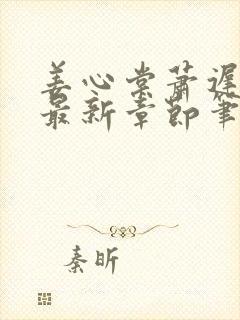 姜心棠萧迟
最新章节笔
秦昕